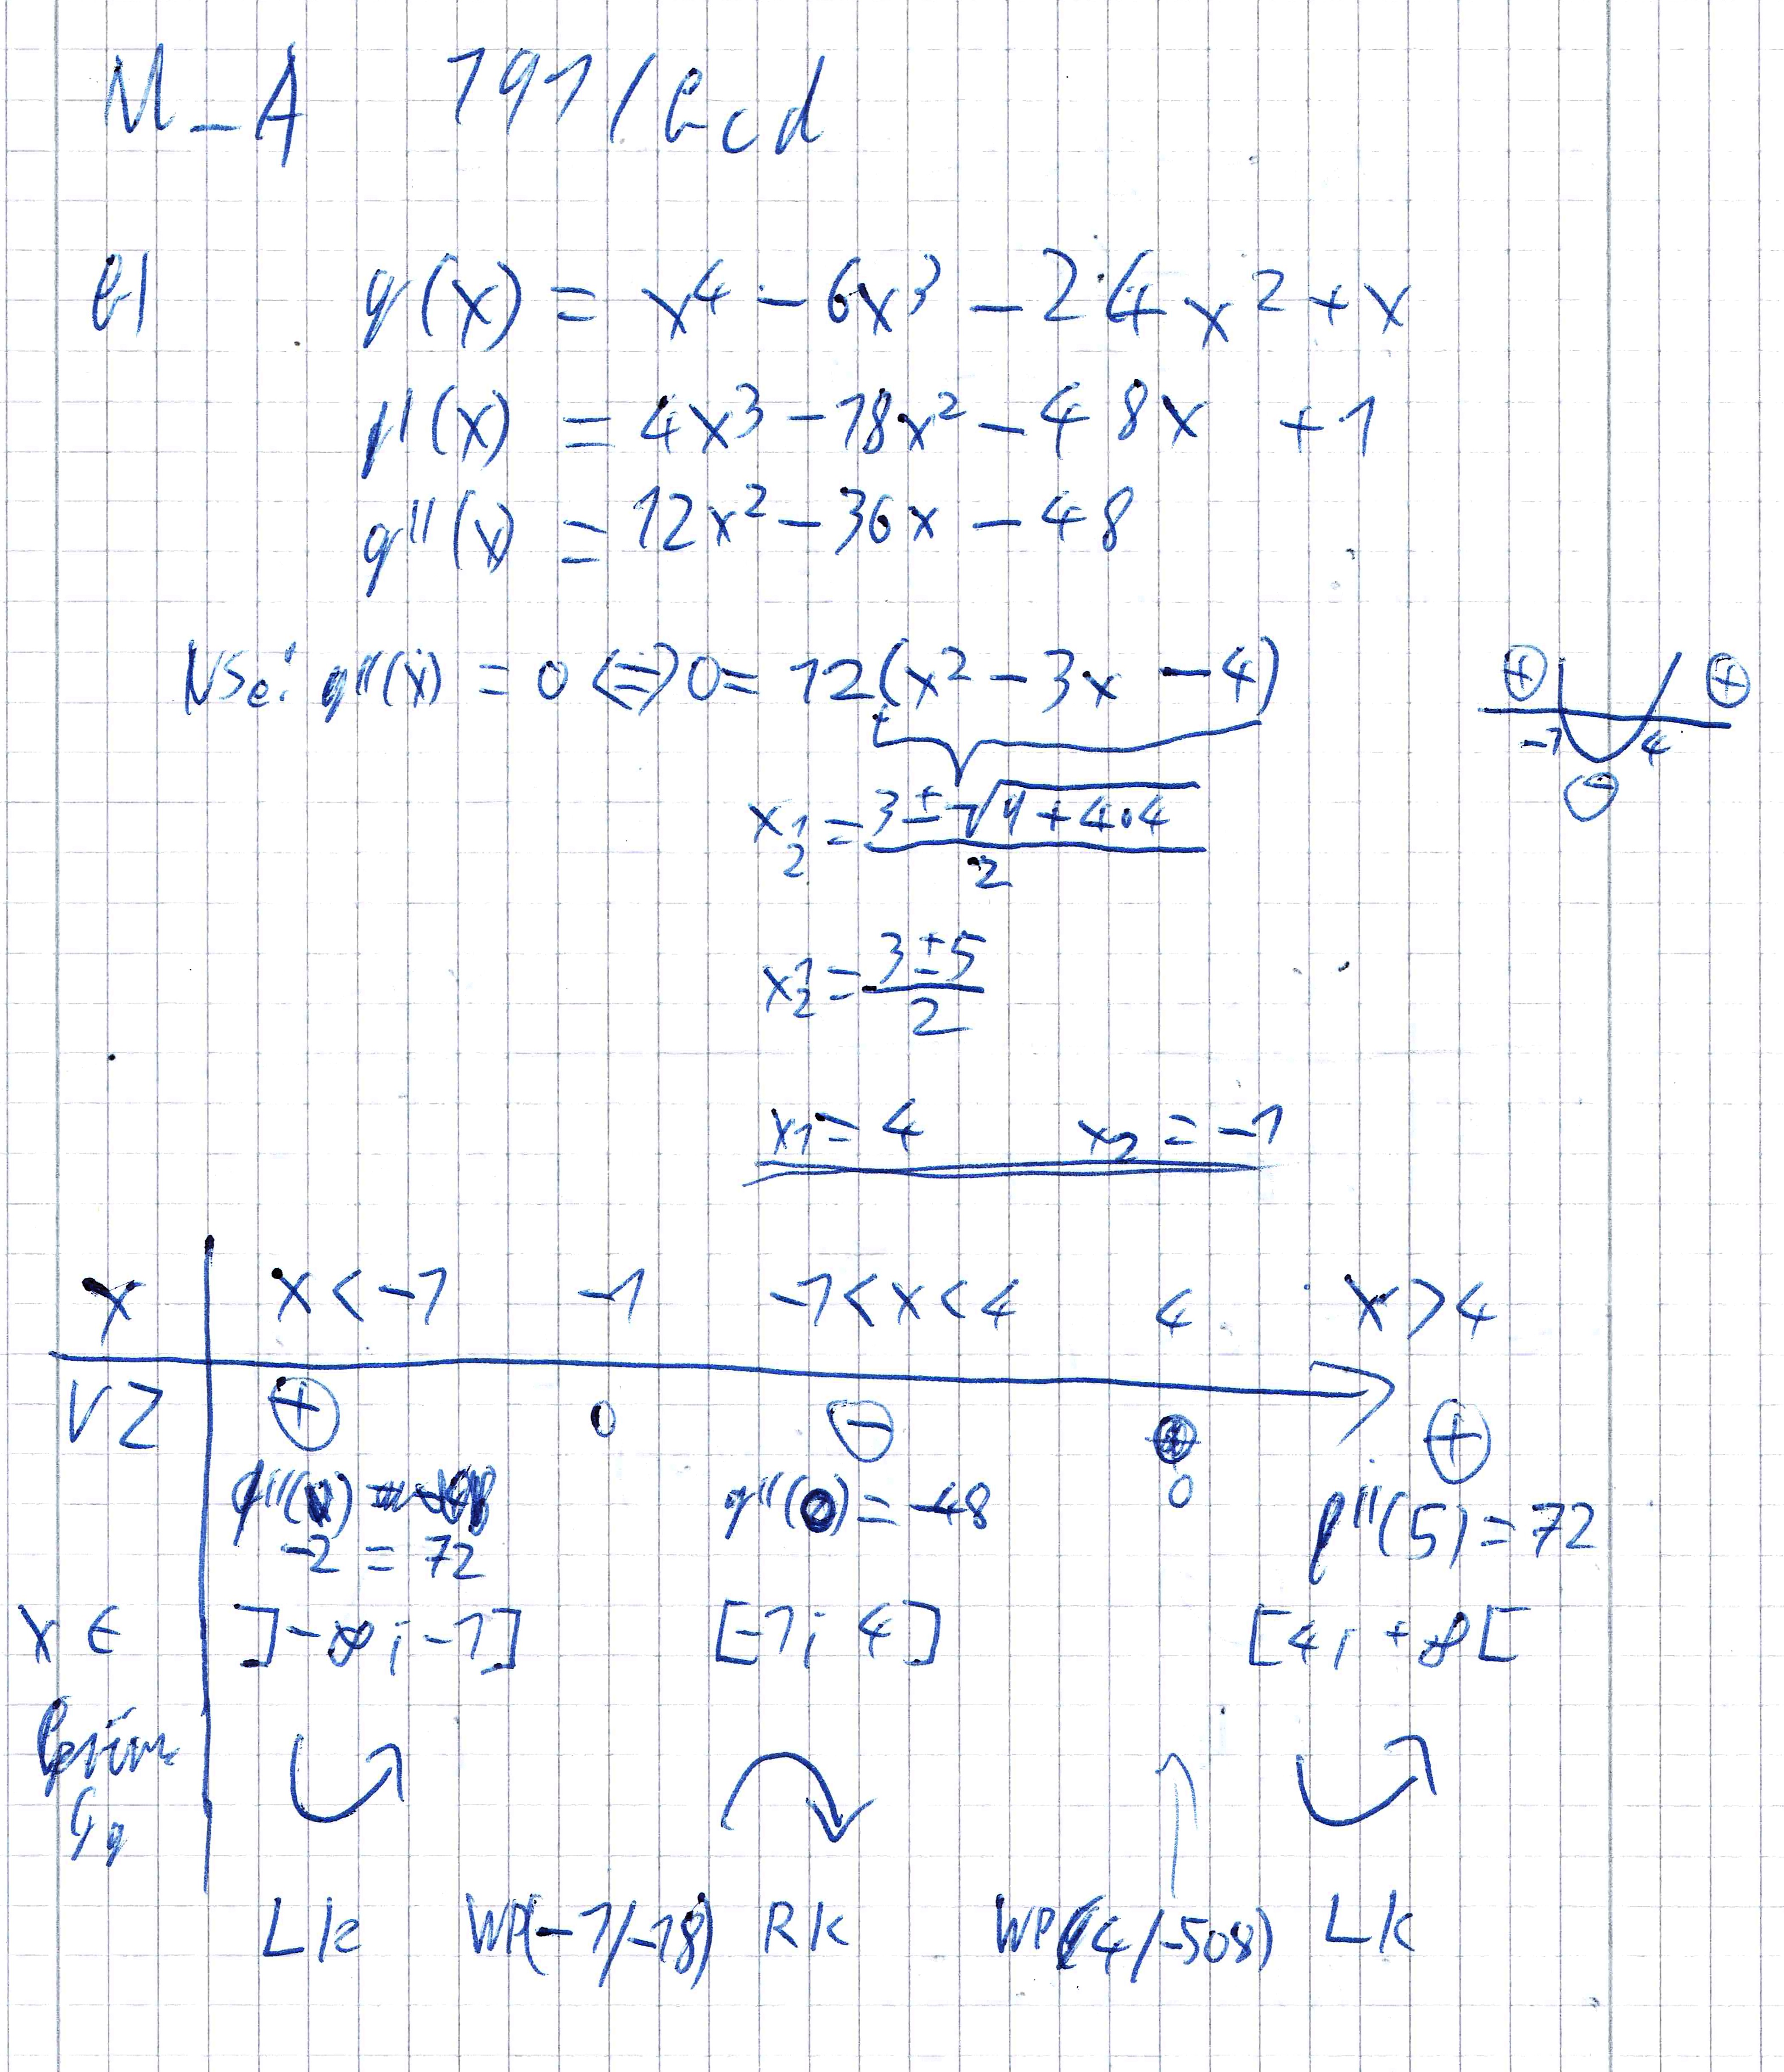 M_A 191/bcd
b) g(x) = x⁴ - 6x³ - 24x² + x
g'(x) = 4x³ - 18x² - 48x + 1
g''(x) = 12x² - 36x - 48
NSe: g''(x) = 0 <=> 0 = 12(x² - 3x - 4)
⊕ ⊕
-1 4
⊖
x₁₂ = (3 ± √(9 + 4·4))/2
x₁₂ = (3 ± 5)/2
x₁ = 4 x₂ = -1
x | x < -1 -1 -1 < x < 4 4 x > 4
VZ | ⊕ 0 ⊖ 0 ⊕
g''(-2) = 72 g''(0) = -48 g''(5) = 72
x ∈ | ]-∞; -1] [-1; 4] [4; +∞[
Gg
Lk WP(-1/-18) Rk WP(4/-508) Lk